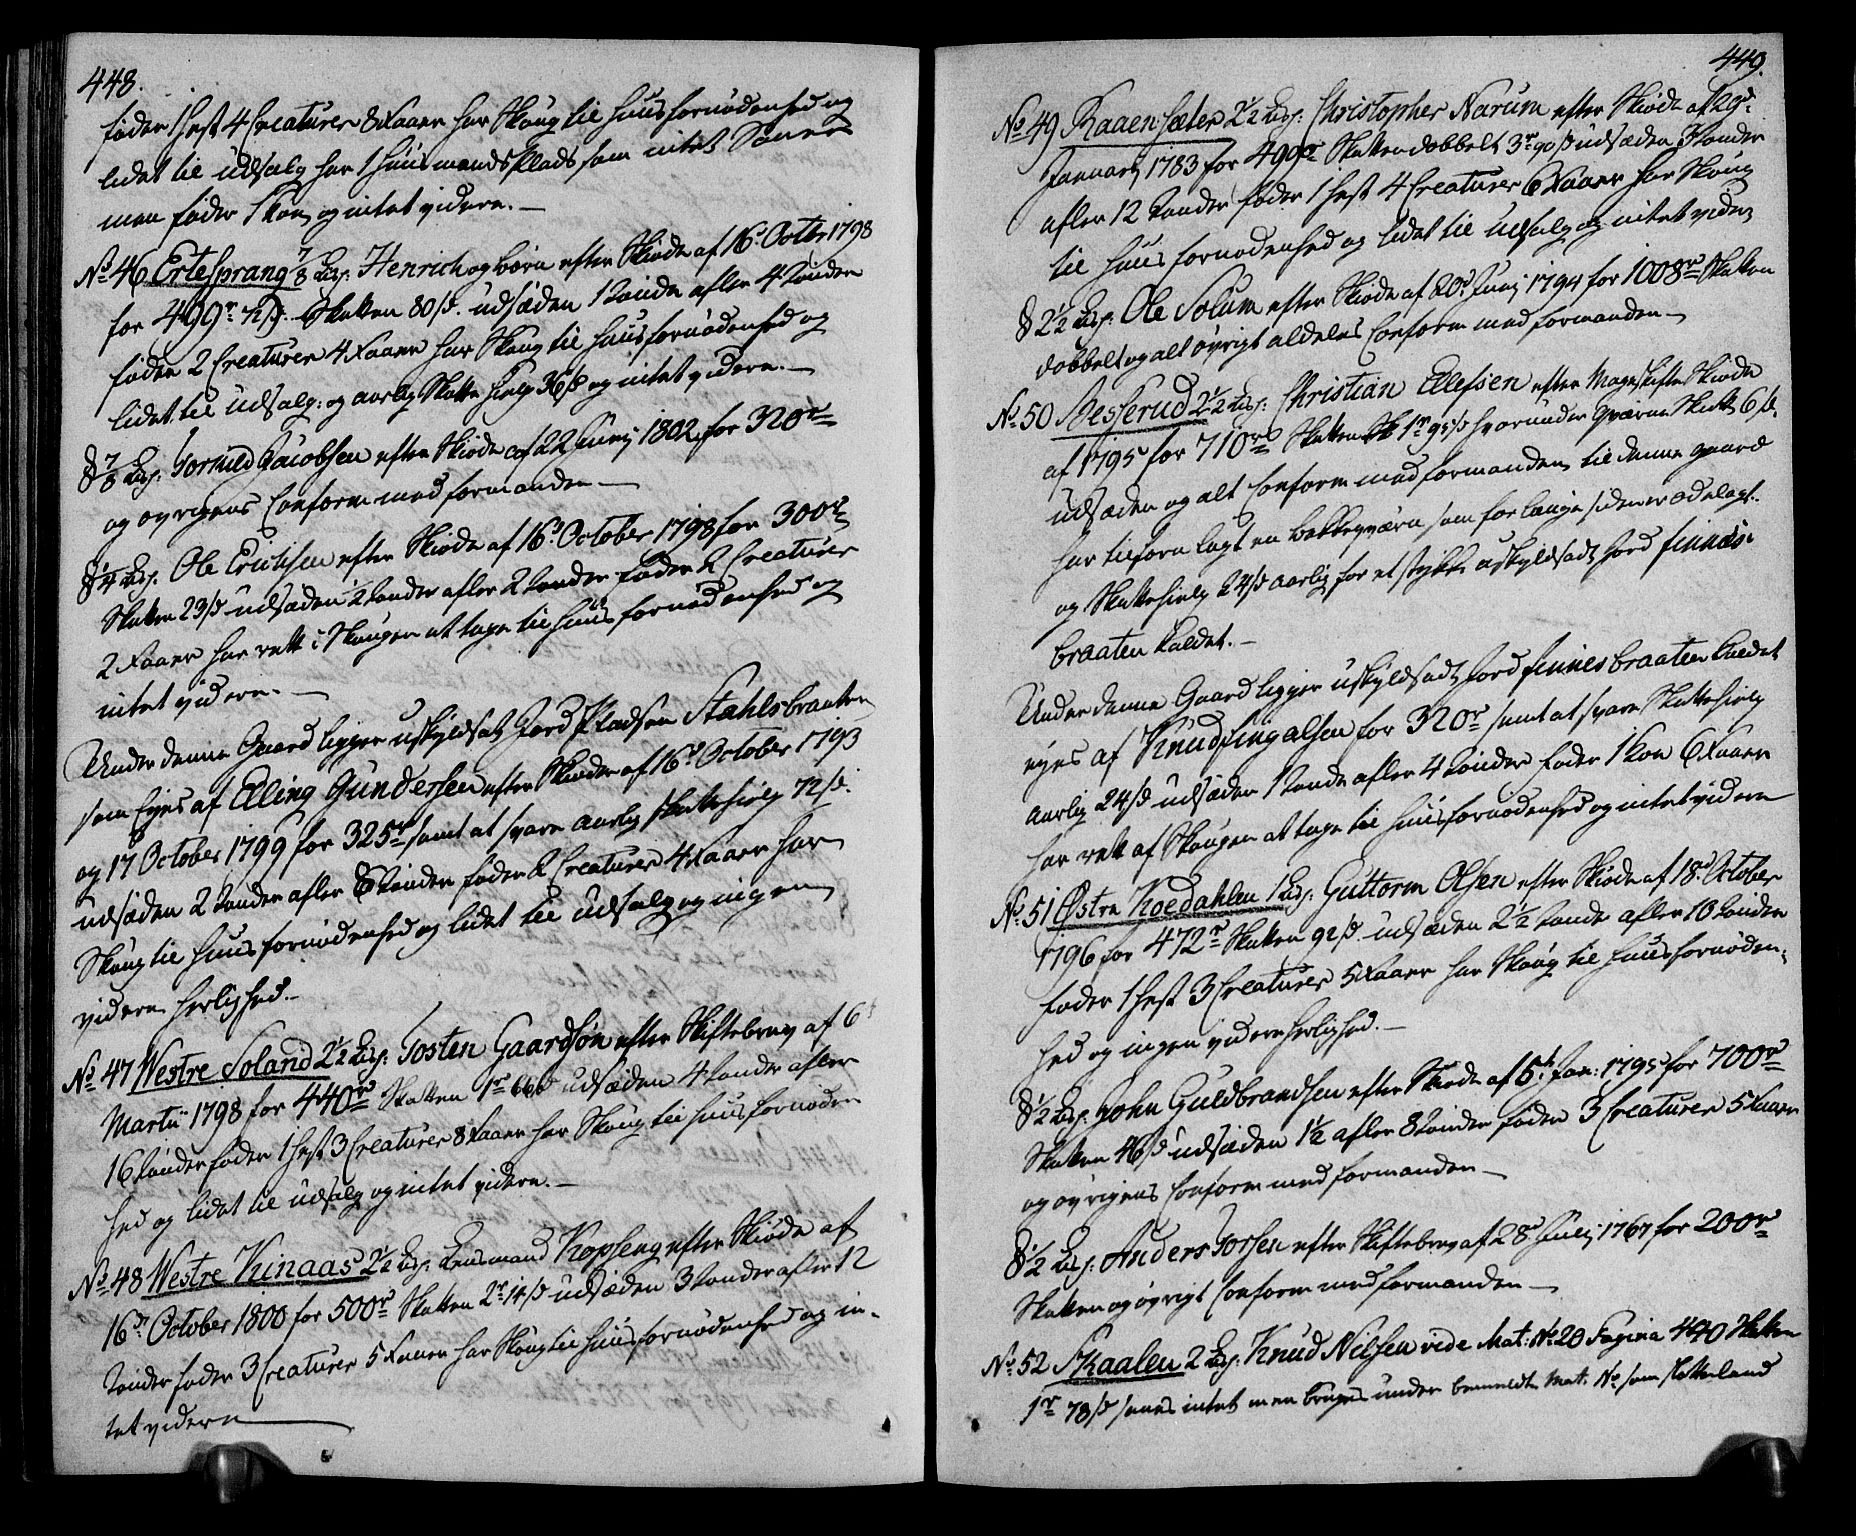 448.
føder 1 hest 4 Creaturer 8 Faaer har Skoug til huus fornødenhed og
lidet til udsalg har 1 huusmandsplads som intet Saaer
men føder 1 Koe og intet videre.—
No 46 Ertesprang 7/8 Lisp: Henrich og børn efter Skiøde af 16d Octbr 1798
for 499r Skatten 80 s. udsæden 1 Tønde afler 4 Tønder
føder 2 Creaturer 4 Faaer har Skoug til huus fornødenhed og
lidet til udsalg: og aarlig Skatte hielp 36 s og intet videre.—
§ 7/8 Lisp: Tornild Jacobsen efter Skiøde af 22 Junij 1802 for 320r
og øvrigens Conform med formanden—
§ 1/4 Lisp. Ole Erichsen efter Skiøde af 16d October 1798 for 300r
Skatten 23 s udsæden 1/2 Tønder afler 2 Tønder føder 2 Creaturer
2 Faaer har rett i Skougen at tage til huus fornødenhed og
intet videre.—
Under denne Gaard ligger uskyldsatz Jord Pladsen Stahlsbraaten
som Eyes af Elling Gundersen efter Skiøde af 16d October 1793
og 17 October 1799 for 325r samt at svare aarlig skattehielp 72 s.
udsæden 2 Tønder afler 8 Tønder føder 2 Creaturer 4 Faaer har
Skoug til huus fornødenhed og lidet til udsalg og ingen
videre herlighed.—
No 47 Westre Soland 2 1/2 Lisp: Tosten Gaardsøn efter Skiftebrev af 6t
Martii 1798 for 440r Skatten 1r 66 s udsæden 4 Tønder afler
16 Tønder føder 1 hest 3 Creaturer 8 Faaer har Skoug til huus fornøden
hed og lidet til udsalg og intet videre.—
No 48 Westre Kinaas 2 1/2 Lisp: Lensmand Kopseng efter Skiøde af
16d October 1800 for 500r Skatten 2r 14 s udsæden 3 Tønder afler 12
Tønder føder 3 Creaturer 5 Faaer har Skoug til huus fornødenhed og in-
tet videre—
449.
No 49 Kaaen Sæter 2 1/2 Lisp: Christopher Narum efter Skiøde af 29d
Januarij 1783 for 499r Skatten dobbelt 3r 90 s udsæden 3 Tønder
afler 12 Tønder føder 1 hest 4 Creaturer 6 Faaer har Skoug
til huus fornødenhed og lidet til udsalg og intet videre
§ 2 1/2 Lisp: Ole Solum efter Skiøde af 20d Junij 1794 for 1008r Skatten
dobbelt og alt øvrigt aldeles Conform med formanden—
No 50 Nesserud 2 1/2 Lisp: Christian Ellefsen efter Mageskifte Skiøde
af 1795 for 710r Skatten 1r 95 s hvorunder qværne Skatt 6 s.
udsæden og alt Conform med formanden, til denne gaard
har tilforn lagt en bekkeqværn som for længe siden er ødelagt.
og Skattehielp 24 s aarlig for et stykke uskyldsadt Jord finnes-
braaten kaldet.—
Under denne Gaard ligger uskyldsadt Jord finnesbraaten kaldet
eyes af Knud Fingalsen for 320r samt at svare Skattehielp
aarlig 24 s udsæden 1 Tønde afler 4 Tønder føder 1 Koe 6 Faaer
har rett af Skougen at tage til huus fornødenhed og intet videre
No 51 Østre Koedahlen 1 Lisp: Guttorm Olsen efter Skiøde af 18d October
1796 for 472r Skatten 92 s udsæden 2 1/2 Tønde afler 10 Tønder
føder 1 hest 3 Creaturer 5 Faaer har Skoug til huus fornøden-
hed og ingen videre herlighed.—
§ 1/2 Lisp: John Guldbrandsen efter Skiøde af 5t Jan: 1795 for 700r
Skatten 46 s udsæden 1 1/2 afler 8 Tønder føder 3 Creaturer 5 Faaer
og øvrigens Conform med formanden—
§ 1/2 Lisp: Anders Torsen efter Skiftebrev af 28d Julij 1767 for 200r
Skatten og øvrigt Conform med formanden—
No 52 Skaalen 2 Lisp: Knud Nilsen vide Mat: No 20 Pagina 440 Skatten
1r 78 s saaes intet men bruges under bemeldte Mat. No som Sletteland